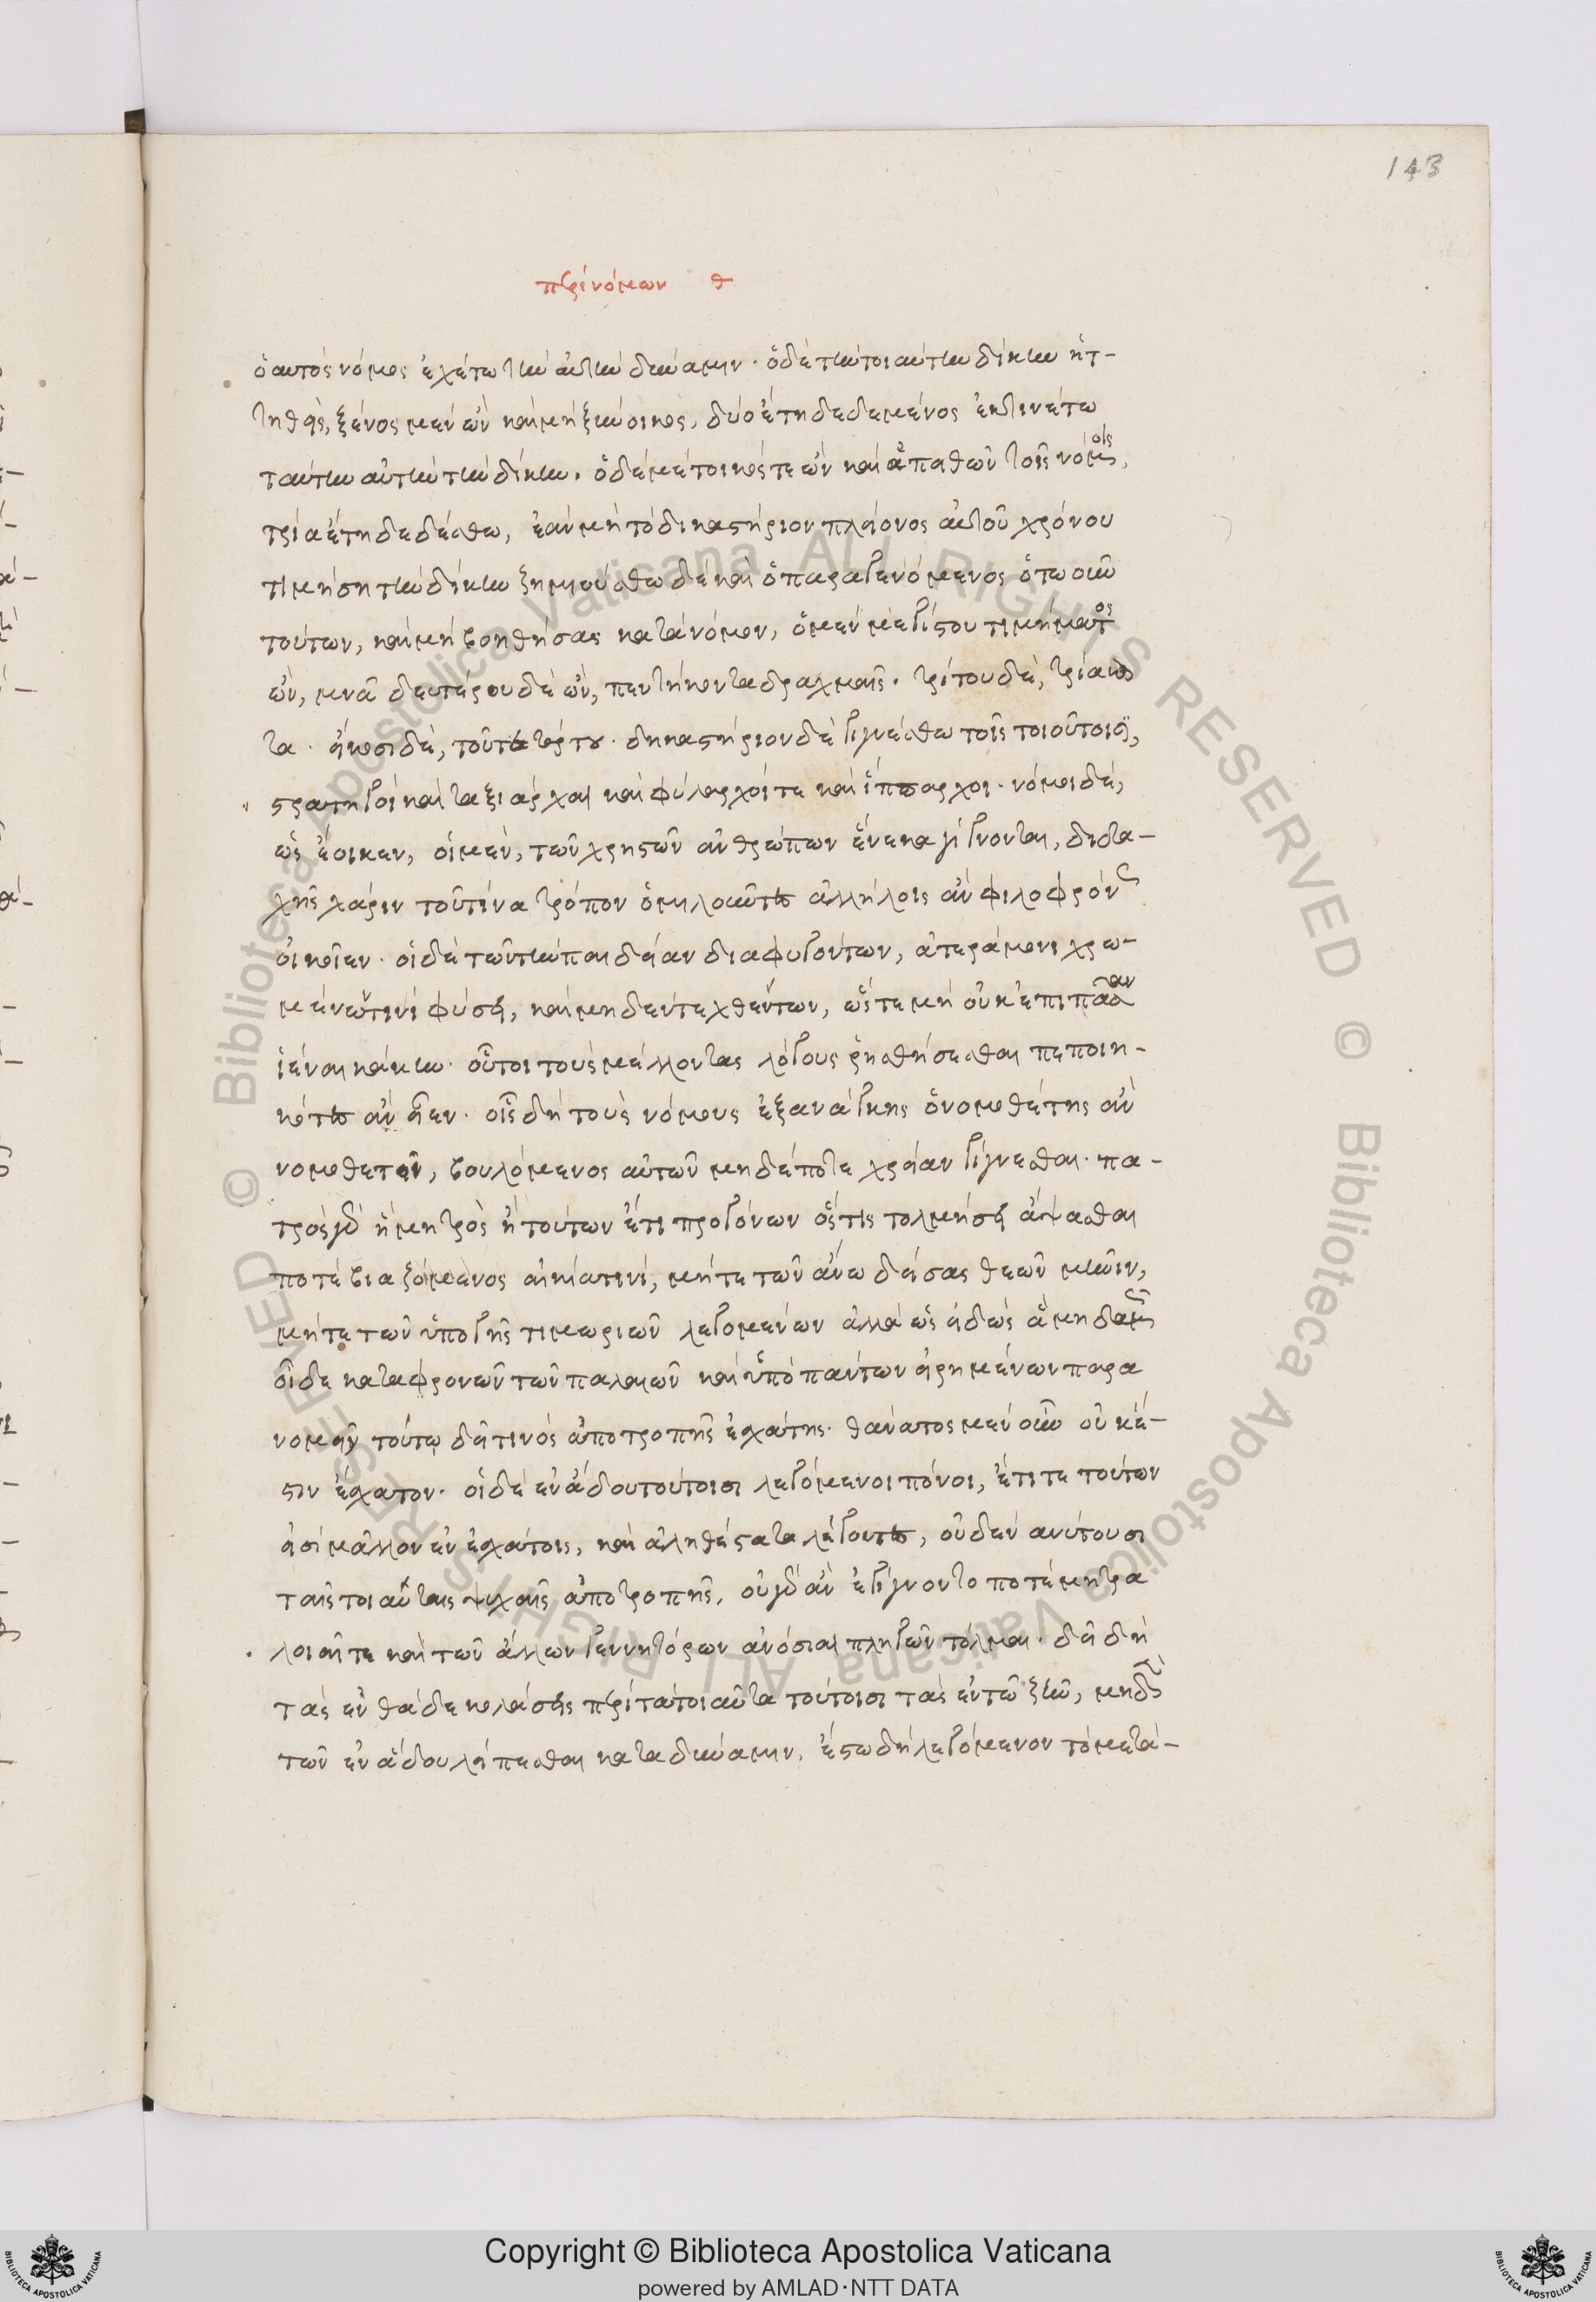 143
περὶ νόμων θ
ὁ αυτὸς νόμος ἐχέτω τὴν ἀυτὴν δύναμιν · ὁ δὲ τὴν τοιαύτην δίκην ἡτ-
τηθεὶς, ξένος μὲν ὢν καὶ μὴ ξύνοικος, δύο ἔτη δεδεμένος ἐκτινέτω
ταύτην αὐτὴν τὴν δίκην. ὁ δὲ μέτοικός τε ὢν καὶ ἀπαθῶν τοῖς νόμοις,
τρία ἔτη δεδέσθω, ἐὰν μὴ τὸ δικαστήριον πλείονος ἀυτοῦ χρόνου
τιμήση τὴν δίκην ζημιούσθω δὲ καὶ ὁ παραγενόμενος ὁτωοῦν
τούτων, καὶ μὴ βοηθήσας κατὰ νόμον, ὁ μὲν μεγίστου τιμήματος
ὢν, μνᾶ δευτέρου δὲ ὢν, πεντήκοντα δραχμαῖς. τρίτου δὲ, τριάκον
τα · είκοσι δὲ, τοῦ τετάρτου · δικαστήριον δὲ γιγνέσθω τοῖς τοιούτοισι,
στρατηγοὶ καὶ ταξιάρχαι καὶ φύλαρχοί τε καὶ ἵππαρχοι · νόμοι δὲ,
ὡς ἔοικεν, οἱ μὲν, τῶν χρηστῶν ἀνθρώπων ἕνεκα γίγνονται, διδα-
χῆς χάριν τοῦ τίνα τρόπον ὁμιλοῦντες ἀλλήλοις ἂν φιλοφρόνως
οἰκοῖεν · οἱ δὲ τῶν τὴν παιδείαν διαφυγόντων, ἀτεράμονι χρω-
μένων τινὶ φύσει, καὶ μηδὲν τεχθέντων, ὥστε μὴ οὐκ ἐπὶ πᾶσαν
ἰέναι κάκην · οὗτοι τοὺς μέλλοντας λόγους ῥηθήσεσθαι πεποιη-
κότες ἂν εἶεν · οἷς δὴ τοὺς νόμους ἐξ ἀνάγκης ὁ νομοθέτης ἂν
νομοθετοῖ, βουλόμενος αὐτῶν μηδέποτε χρείαν γίγνεσθαι · πα-
τρὸς γὰρ ἢ μητρὸς ἢ τούτων ἔτι προγόνων ὅστις τολμήσει ἅψασθαι
ποτὲ βιαζόμενος αἰκία τινὶ, μήτε τῶν ἄνω δείσας θεῶν μῆνιν,
μήτε τῶν ὑπὸ γῆς τιμωριῶν λεγομένων ἀλλὰ ὡς εἰδὼς ἃ μηδαμῶς
οἶδε καταφρονῶν τῶν παλαιῶν καὶ ὑπὸ πάντων εἰρημένων παρα
νομεῖ τούτῳ δεῖ τινὸς ἀποτροπῆς ἐσχάτης · θάνατος μὲν οὖν οὐκ ἔ-
στιν ἔσχατον · οἱ δὲ ἐν ἅδου τούτοισι λεγόμενοι πόνοι, ἔτι τε τούτων
εἰσὶ μᾶλλον ἐν ἐσχάτοις, καὶ ἀληθέστατα λέγοντες, οὐδὲν ανύτουσι
ταῖς τοιαύταις ψυχαῖς ἀποτροπῆς, οὐ γὰρ ἂν ἐγίγνοντο ποτὲ μητρα
λοιαί τε καὶ τῶν ἄλλων γεννητόρων ἀνόσιαι πληγῶν τόλμαι · δεῖ δὴ
τὰς ἐνθάδε κολάσεις περὶ τὰ τοιαῦτα τούτοισι τὰς ἐν τῶ ζῆν, μηδὲν
τῶν ἐν ἅδου λείπεσθαι κατὰ δύναμιν. ἔστω δὴ λεγόμενον τὸ μετὰ-
Copyright © Biblioteca Apostolica Vaticana
powered by AMLAD·NTT DATA